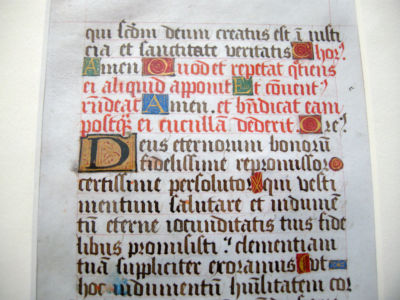 qui scd̄m deum creatus est ī iusti
cia et sanctitate veritatis Chor⁹
Amen Quod et repetat qͥtiens
ei aliquid apponit Et cōuent⁹
rn̄deat Amen. et bn̄dicat eam
postqꝫ ei cucullam dederit. Ore⁹.
Deus eternorum bonorū
fidelissime repromissor
certissime persolutor qui vesti
mentum salutare et indumē
tū eterne iocunditatis tuis fide
libus promisisti ⁊ clementiam
tuā suppliciter exoramus Ut
hoc indumentū humilitatem cor